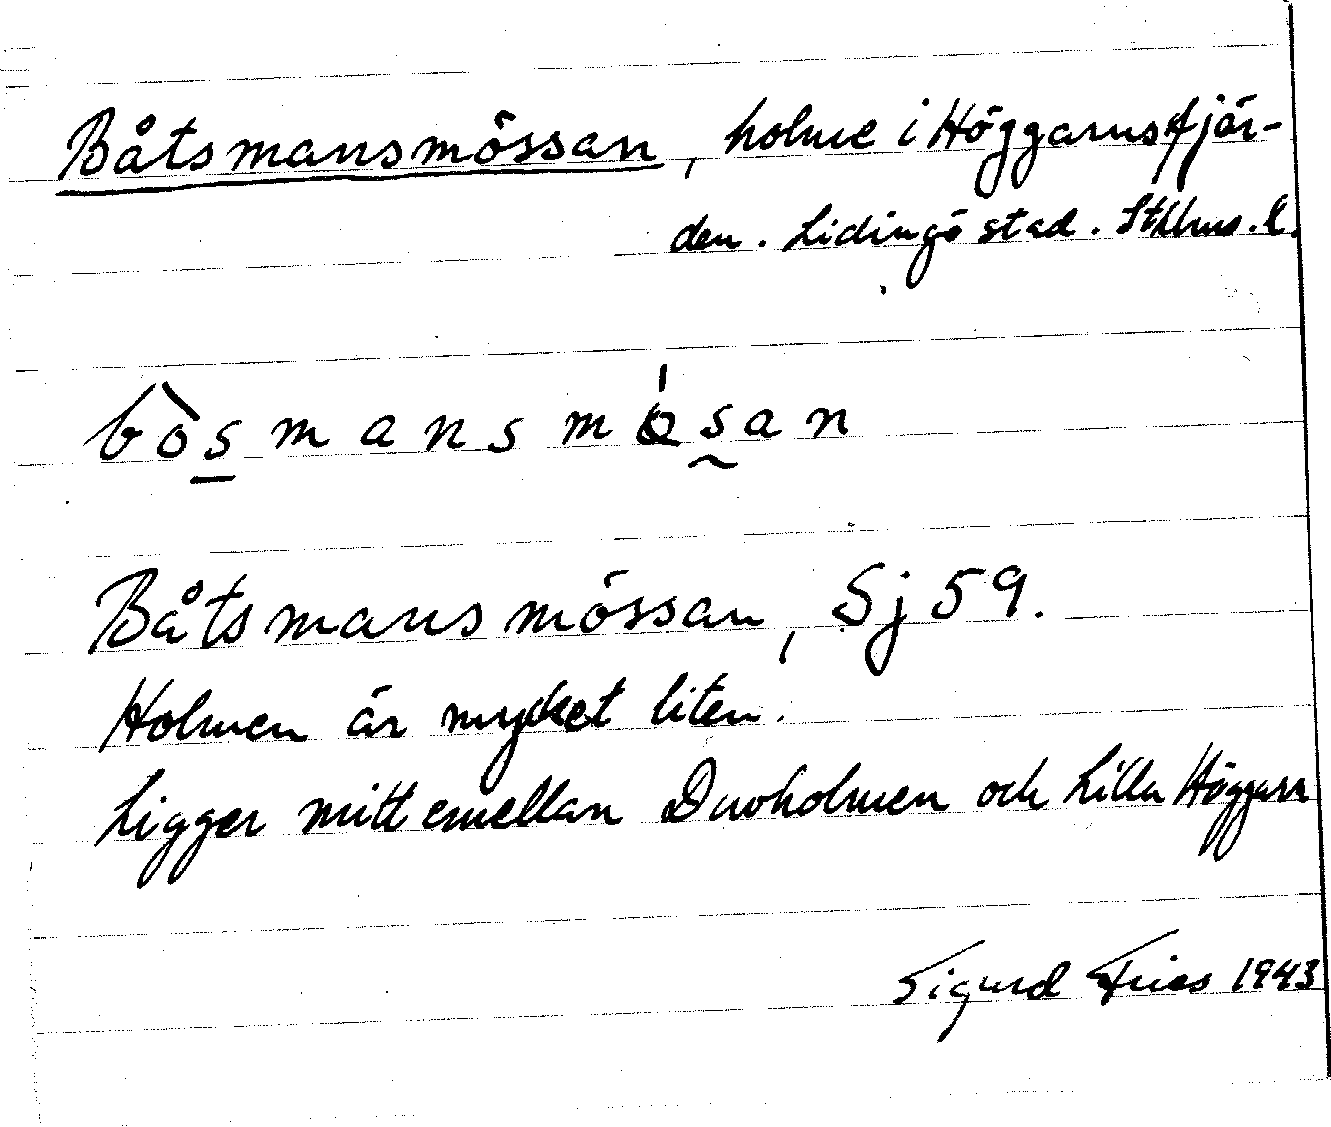 Båtsmansmössan, holme i Höggarnsfjär-
den. Lidingö stad. Sthlms. l.
bòsmansmósan
Båtsmansmössan, Sj 59.
Holmen är mycket liten.
Ligger mitt emellan Duvholmen och Lilla Höggarn
Sigurd Fries 1943